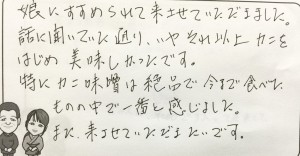 娘にすすめられて来させていただきました。
話に聞いていた通り、いやそれ以上カニを
はじめ美味しかったです。
特にカニ味噌は絶品で今まで食べた
ものの中で一番と感じました。
また、来させていただきたいです。